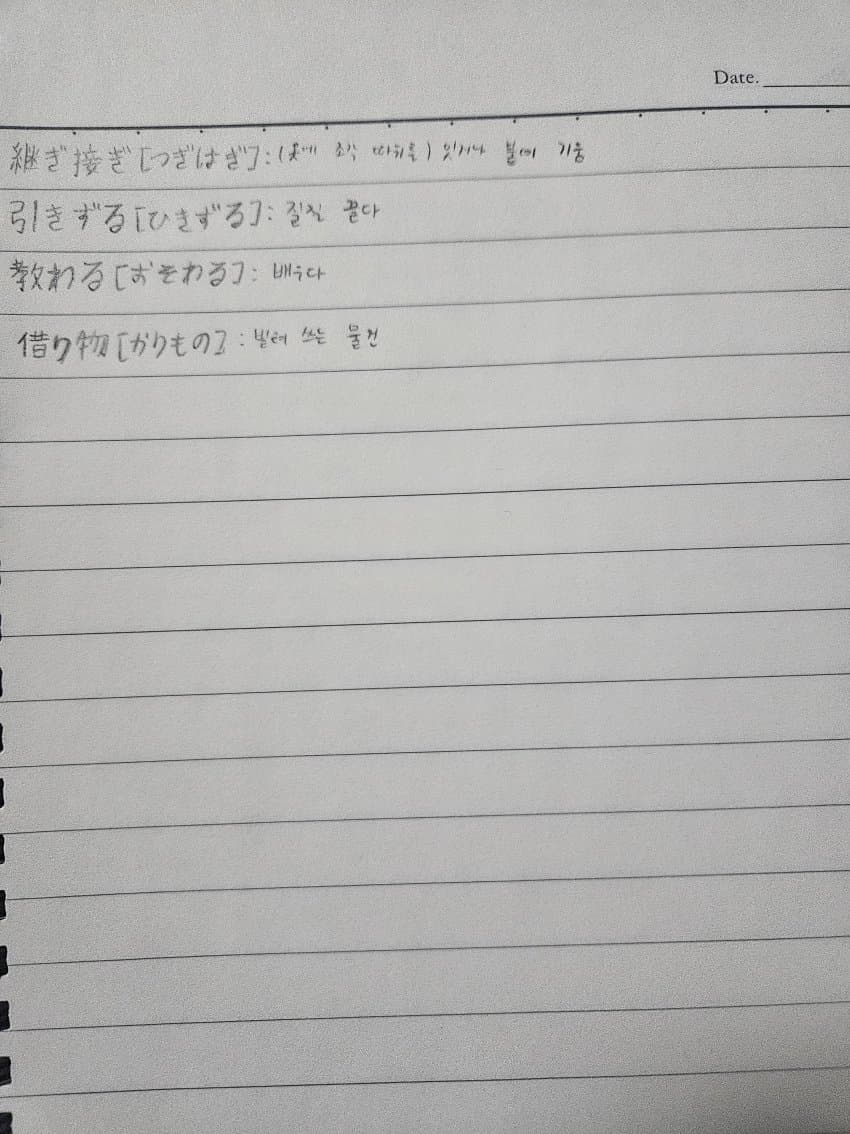 Date.
継ぎ接ぎ[つぎはぎ]:(옷에 조각 따위를) 잇거나 붙여 기움
引きずる[ひきずる]: 질질 끌다
教わる[おそわる]: 배우다
借り物[かりもの]: 빌려 쓰는 물건